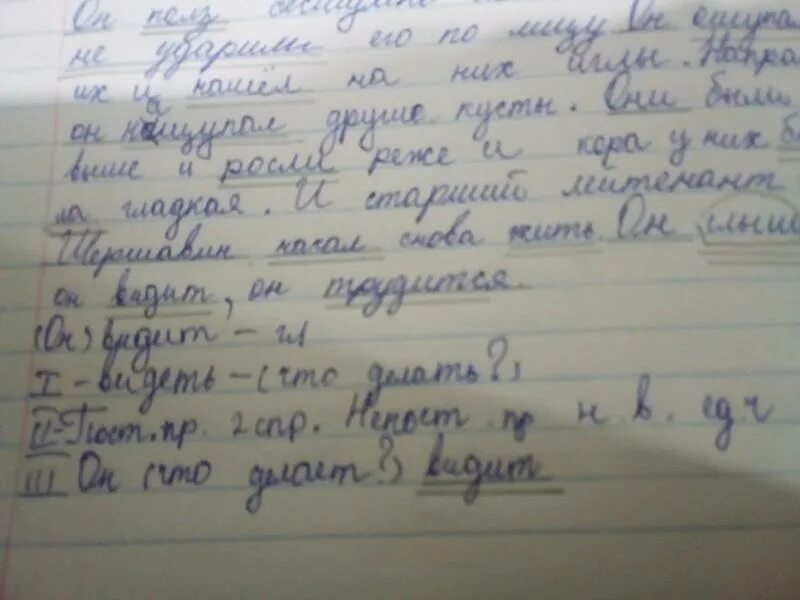 Он полз бесшумно
не ударили его по лицу Он ощупал
их и нашёл на них иглы. Напра
он нащупал другие кусты. Они были
выше и росли реже и кора у них б
ла гладкая. И старший лейтенант
Шершавин начал снова жить. Он слыш
он видит, он трудится.
(Он) видит - гл
I - видеть - (что делать?)
II - Пост. пр. 2 спр. Непост. пр н. в. ед. ч
III Он (что делает?) видит